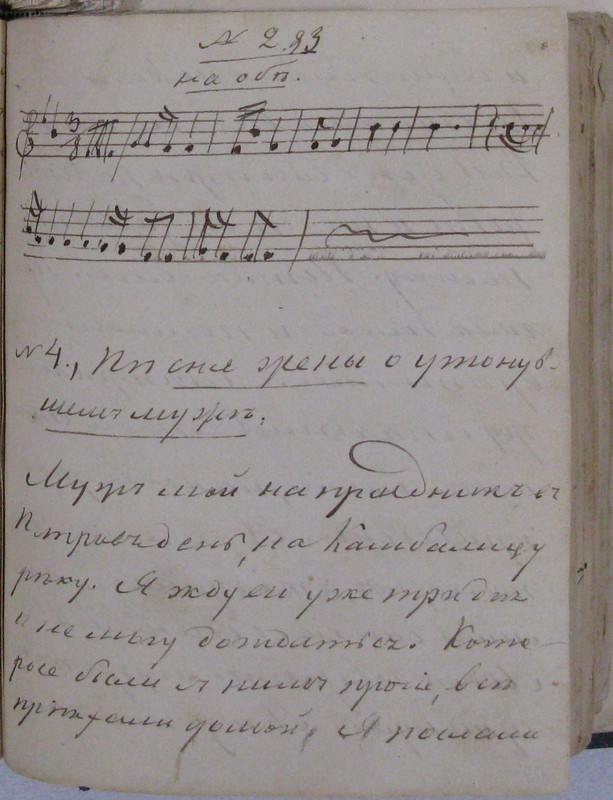 N 283
на об.
3
8
N 4., Пѣсня жены о утонув-
шемъ мужѣ.
Мужъ мой на праздникъ въ
Петровъ день, на Камбалицу
рѣку. Я жду его уже три дня
и не могу дождаться. Кото-
рые были с нимъ прочіе, всѣ
пріѣхали домой, Я послала